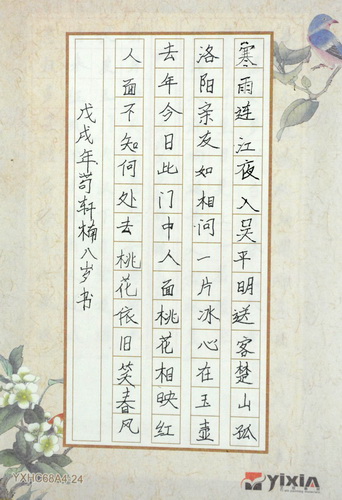 寒雨连江夜入吴平明送客楚山孤
洛阳亲友如相问一片冰心在玉壶
去年今日此门中人面桃花相映红
人面不知何处去桃花依旧笑春风
戊戌年苟轩楠八岁书
YXHC68A4_24
yixia